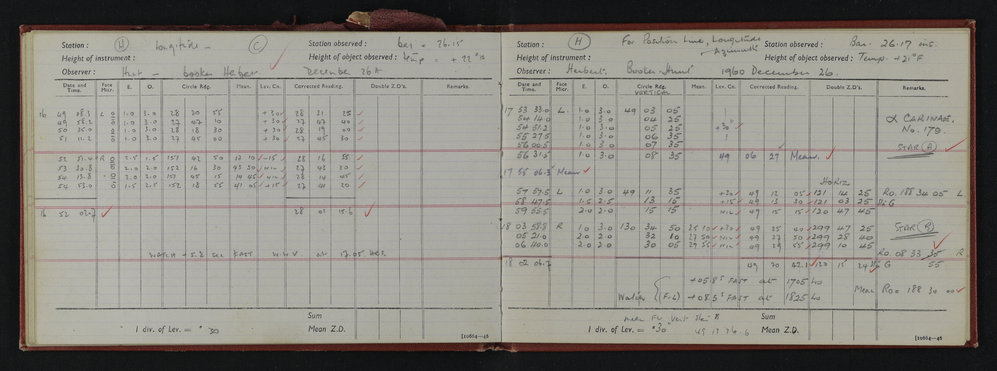 Station : (H) Longitude - (C) Station observed : bar = 26.15
Height of instrument : Height of object observed : temp = + 22 °F
Observer : Hunt - booker Herbert December 26th
Date and Time. Face Micr. E. O. Circle Rdg. Mean. Lev. Cn. Corrected Reading. Double Z.D's. Remarks.
16 49 08.3 L 1.0 3.0 28 30 55 +30 28 31 25
49 58.2 1.0 3.0 27 47 10 +30 27 47 40
50 35.0 1.0 3.0 28 18 30 +30 28 19 00
51 11.2 1.0 3.0 27 45 00 +30 27 45 30
52 51.4 R 2.5 1.5 151 42 50 17 10 -15 28 16 55
53 30.8 2.0 2.0 152 16 30 43 30 NIL 27 43 30
54 13.8 2.0 2.0 151 45 15 14 45 NIL 28 14 45
54 53.0 1.5 2.5 152 18 55 41 05 +15 27 41 20
16 52 02.7 28 01 15.6
WATCH + 5.2 sec FAST W.W.V at 17.05 HRS.
Sum
1 div. of Lev. = " 30 Mean Z.D.
[10664—46
Station : (H) For Position Line, Longitude Azimuth Station observed : Bar. 26.17 ins.
Height of instrument : Height of object observed : Temp +21°F
Observer : Herbert. Booker - Hunt 1960 December 26.
Date and Time. Face Micr. E. O. Circle Rdg. Mean. Lev. Cn. Corrected Reading. Double Z.D's. Remarks.
VERTICAL
17 53 33.0 L. 1.0 3.0 49 03 05
54 14.0 1.0 3.0 04 25
54 51.2 1.0 3.0 05 25 +30"
55 27.5 1.0 3.0 06 35
56 00.5 1.0 3.0 07 35
56 31.5 1.0 3.0 08 35 49 06 27 Mean
α CARINAE.
No. 179.
STAR (A)
17 55 06.3 Mean
HORIZ
57 57.5 L 1.0 3.0 49 11 35 +30 49 12 05 121 14 25 Ro. 188 34 05 L
58 47.5 1.5 2.5 13 15 +15 49 13 30 121 03 25
59 55.5 2.0 2.0 15 15 NIL 49 15 15 120 47 45
18 03 58.8 R 1.0 3.0 130 34 50 25 10 +30 49 25 40 299 47 25 STAR (B)
05 21.0 2.0 2.0 32 10 27 50 NIL 49 27 50 299 28 40
06 40.0 2.0 2.0 30 05 29 55 NIL 49 29 55 299 10 45
Ro. 08 33 35 R
18 02 06.7 49 20 42.1 120 15 24 G 55
Watch (F-L) +05.8s FAST at 1705 40
+08.5s FAST at 1825 40 Mean Ro = 188 30 00
Sum
1 div. of Lev. = "30" 49 13 36.6 Mean Z.D.
[10664—46